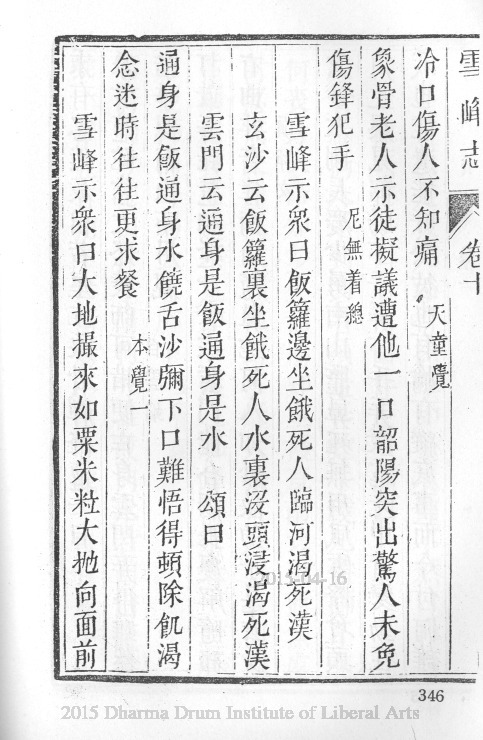 雪峰志 卷十
冷口傷人不知痛 天童覺
象骨老人示徒擬議遭他一口韶陽突出驚人未免
傷鋒犯手 尼無着總
雪峰示衆曰飯籮邊坐餓死人臨河渴死漢
玄沙云飯籮裏坐餓死人水裏沒頭浸渴死漢
雲門云通身是飯通身是水 頌曰
通身是飯通身水饒舌沙彌下口難悟得頓除飢渴
念迷時往往更求餐 本覺一
雪峰示衆曰大地撮來如粟米粒大抛向面前
346
2015-04-16
2015 Dharma Drum Institute of Liberal Arts